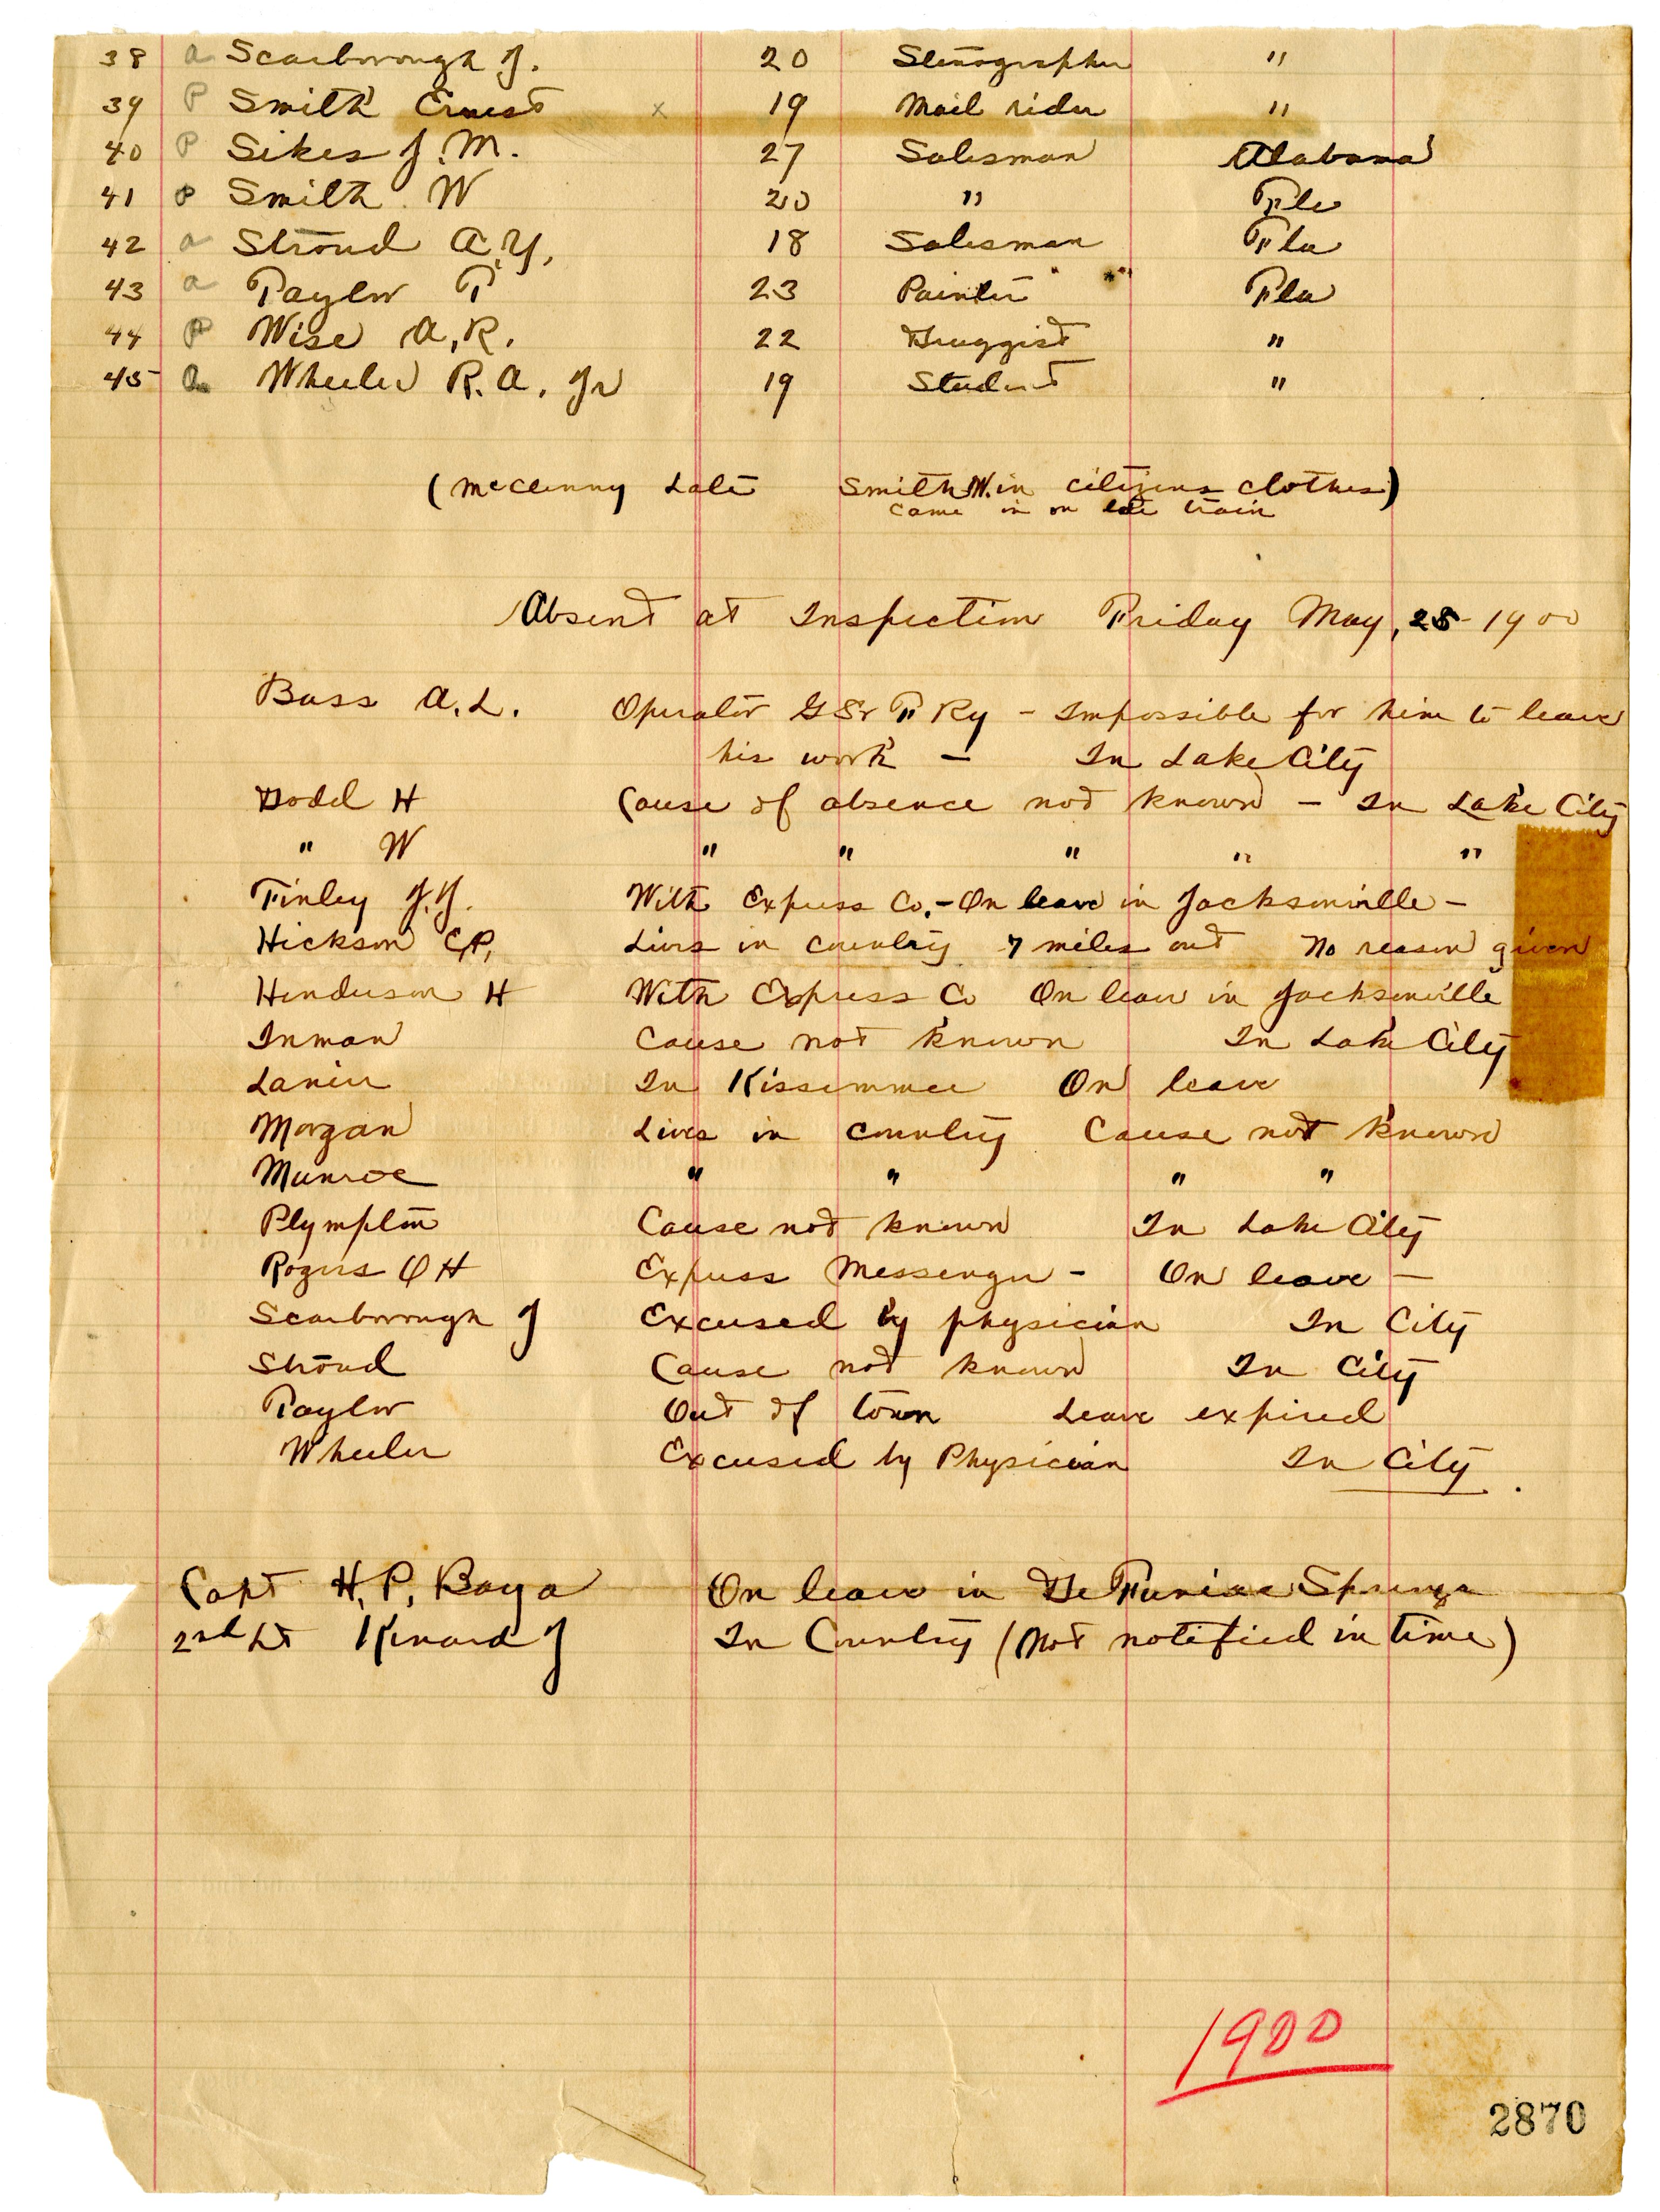 38 a Scarborough J. 20 Stenographer "
39 P Smith Ernest x 19 Mail rider "
40 P Sikes J. M. 27 Salesman Alabama
41 P Smith W 20 " Fla
42 a Stroud A. Y. 18 Salesman Fla
43 a Taylor T 23 Painter Fla
44 P Wise A, R. 22 Druggist "
45 a Wheeler R. A. Jr 19 Student "
(McClenny Late Smith W. in citizens clothes)
came in on late train
Absent at Inspection Friday May, 25 - 1900
Bass A. L. Operator G S & F Ry - Impossible for him to leave
his work — In Lake City
Dodd H Cause of absence not known - In Lake City
" W " " " " "
Finley J. J. With Express Co. - On leave in Jacksonville -
Hickson C. P. Lives in country 7 miles out No reason given
Henderson H With Express Co On leave in Jacksonville
Inman Cause not known In Lake City
Lanier In Kissimmee On leave
Morgan Lives in country Cause not known
Munroe " " " "
Plympton Cause not known In Lake City
Rogers O H Express Messenger - On leave —
Scarborough J Excused by physician In City
Stroud Cause not known In City
Taylor Out of town Leave expired
Wheeler Excused by Physician In City.
Capt H. P. Baya On leave in DeFuniac Springs
2nd Lt Kinard J In Country (Not notified in time)
1900
2870